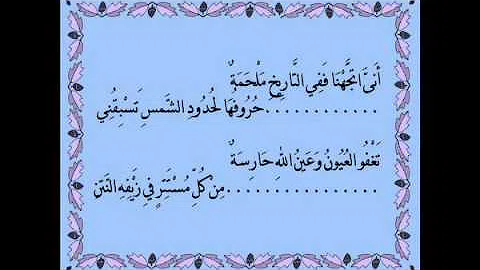 أَنىَّ اتجَّهْنَا فَفِي التَّارِيخِ مَلْحَمَةٌ
............حُرُوفُهَا لحُدُودِ الشَّمْسِ تَسْبِقُنِي
تَغْفُو العُيُونُ وَعَينُ اللهِ حَارِسَةٌ
................مِنْ كُلِّ مُسْتَترٍ في زَيْفِهِ النَّتنِ